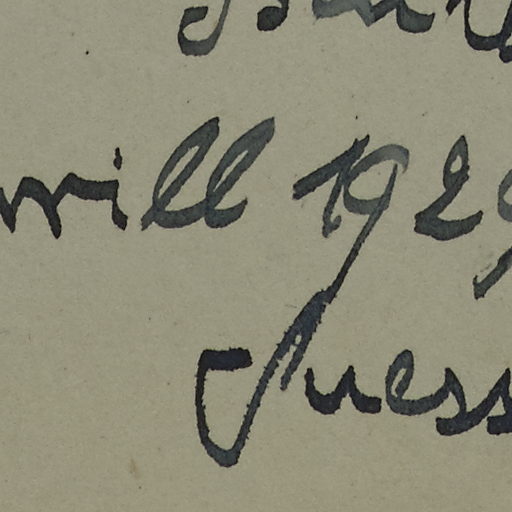 rrill 1929
Suess